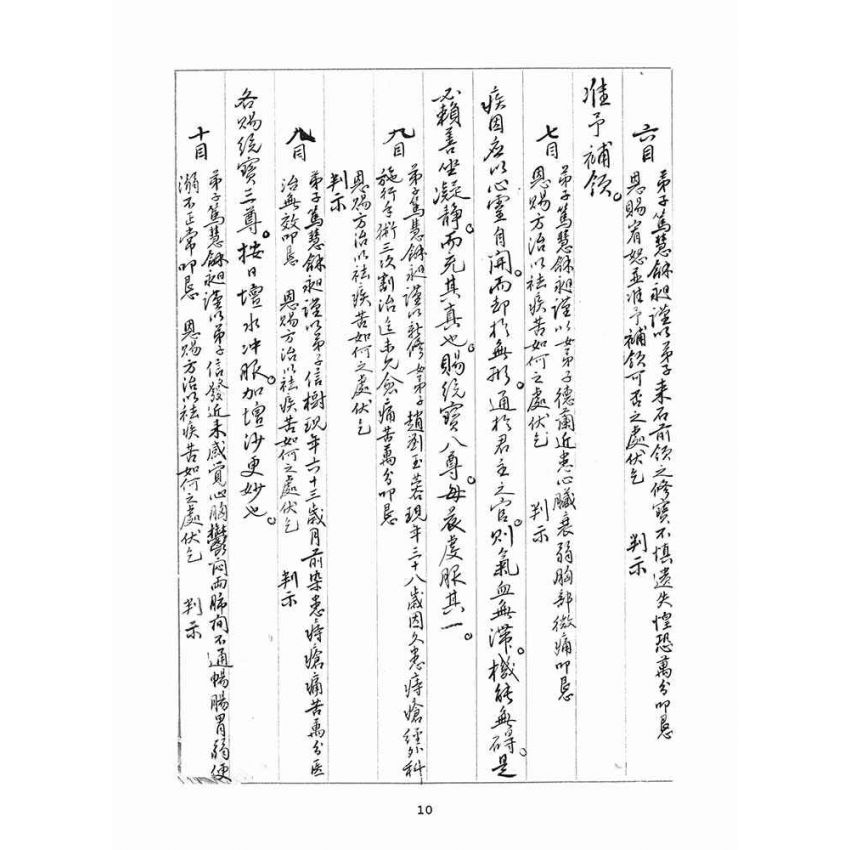 六目 弟子篤慧穌昶謹以弟子 未石前領之修寶不慎遺失惶恐萬分叩懇
恩賜宥恕並准予補領可否之處伏乞 判示
准予補領。
七目 弟子篤慧穌昶謹以女弟子德蘭近患心臟衰弱胸部微痛叩懇
恩賜方治以祛疾苦如何之處伏乞 判示
疾因應以心靈自開。而却於無形。通於君主之官。則氣血無滯。機能無碍。是
必賴善坐凝靜。而充其真也。賜統寶八尊。每晨虔服其一。
九目 弟子篤慧穌昶謹以新修女弟子趙劉玉蓉現年三十八歲因久患痔瘡經外科
施行手術三次割治迄未允愈痛苦萬分叩懇
恩賜方治以祛疾苦如何之處伏乞
判示
八目 弟子篤慧穌昶謹以弟子信樹現年六十三歲月前染患痔瘡痛苦萬分医
治無效叩懇 恩賜方治以祛疾苦如何之處伏乞 判示
各賜統寶三尊。按日壇水冲服。加壇沙更妙也。
十目 弟子篤慧穌昶謹以弟子信發近來感覺心胸鬱悶兩肺間不通暢腸胃弱便
溺不正常叩懇 恩賜方治以祛疾苦如何之處伏乞 判示
10